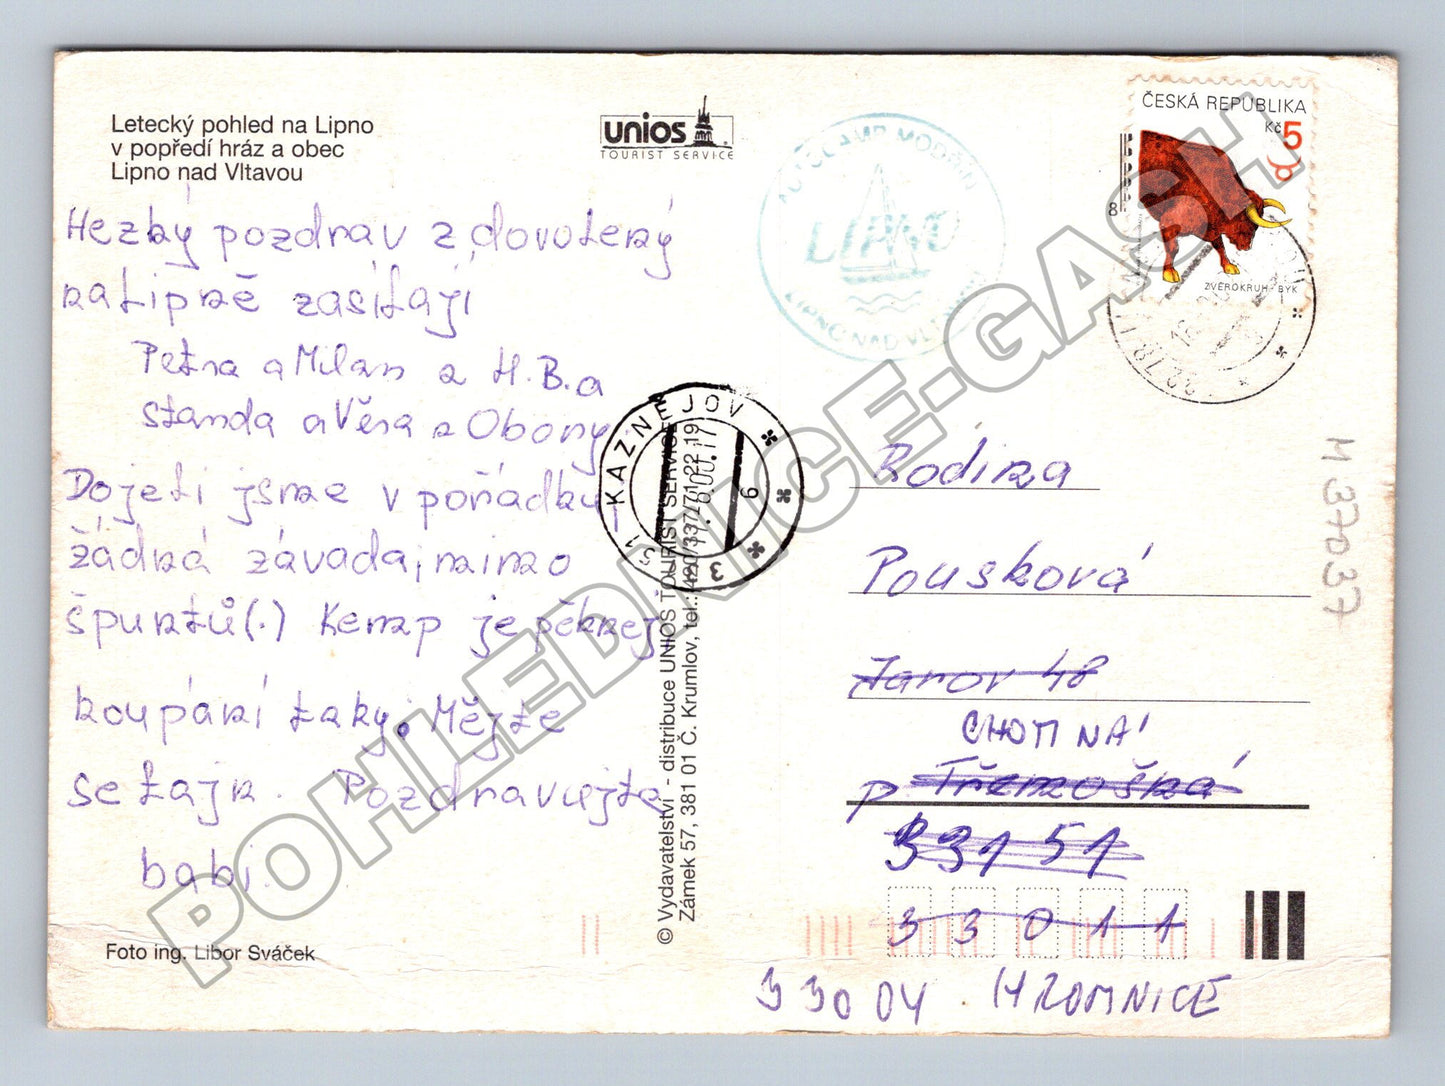 Letecký pohled na Lipno
v popředí hráz a obec
Lipno nad Vltavou
unios
TOURIST SERVICE
AUTOCAMP MODŘÍN
LIPNO
LIPNO NAD VLTAVOU
ČESKÁ REPUBLIKA
Kč 5
8
ZVĚROKRUH - BÝK
Hezký pozdrav z dovolený
na Lipně zasílají
Petra a Milan z H.B. a
Standa a Věra z Obory
Dojeli jsme v pořádku,
žádná závada, mimo
špuntů (.) Kemp je pěknej
koupání taky. Mějte
se fajn. Pozdravujte
babi.
Foto ing. Libor Sváček
© Vydavatelství - distribuce UNIOS TOURIST SERVICE
Zámek 57, 381 01 Č. Krumlov, tel.: 420/337/71 22 19
KAZNĚJOV
331 51
6
Rodina
Pousková
Žarov 48
CHOTINÁ
p Třemošná
331 51
33011
33004 HROMNICE
M 37037
POHLEDNICE-GASH